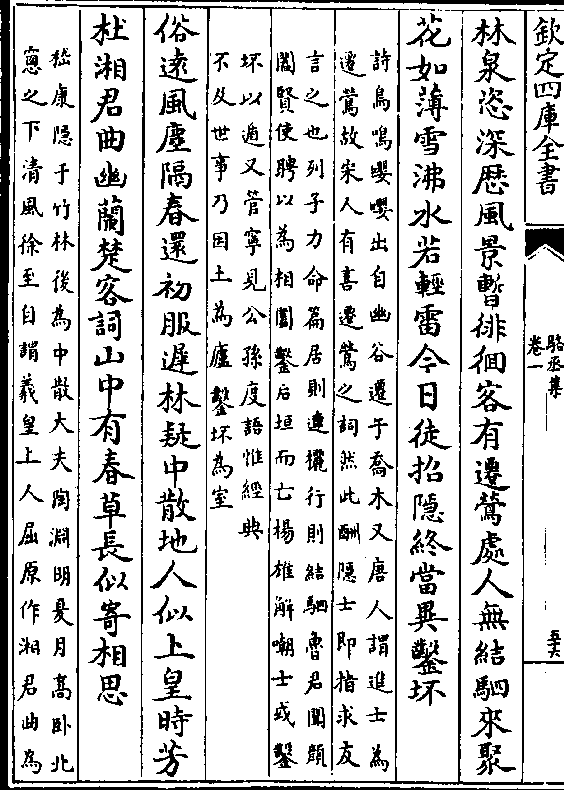 欽定四庫全書
駱丞集
卷一
五六
林泉恣探歴風景暫徘徊客有遷鶯處人無結駟來聚
花如薄雪沸水若輕雷今日徒招隠終當異鑿坏
詩鳥鳴嚶嚶出自幽谷遷于喬木又唐人謂進士為
遷鶯故宋人有喜遷鶯之詞然此酬隠士即指求友
言之也列子力命篇居則連欐行則結駟魯君聞顔
闔賢使聘以為相闔鑿后垣而亡楊雄解嘲士或鑿
坏以遁又管寧見公孫度語惟經典
不及世事乃因土為廬鑿坏為室
俗逺風塵隔春還初服遲林疑中散地人似上皇時芳
杜湘君曲幽蘭楚客詞山中有春草長似寄相思
嵇康隠于竹林後為中散大夫陶淵明夏月髙卧北
窻之下清風徐至自謂羲皇上人屈原作湘君曲為